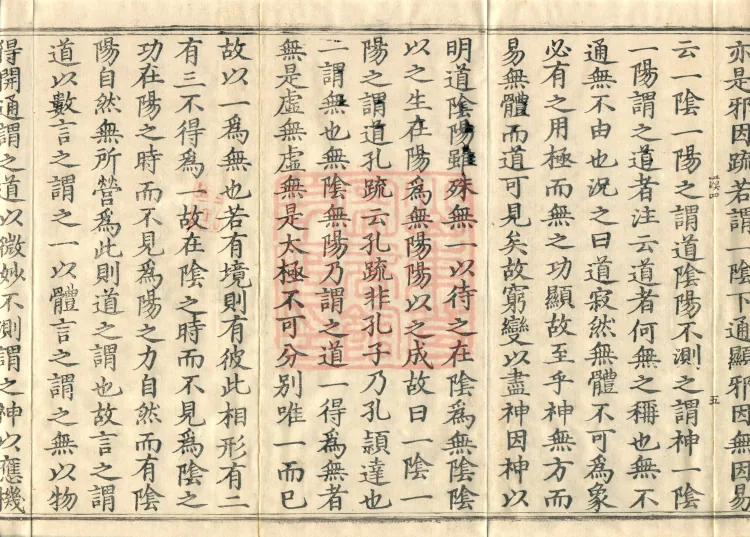 亦是邪因疏若謂一陰下通顯邪因無因易
云一陰一陽之謂道陰陽不測之謂神一陰
一陽謂之道者注云道者何無之稱也無不
通無不由也況之曰道寂然無體不可爲象
必有之用極而無之功顯故至乎神無方而
易無體而道可見矣故窮變以盡神因神以
明道陰陽雖殊無一以待之在陰爲無陰陰
以之生在陽爲無陽陽以之成故曰一陰一
陽之謂道孔疏云孔疏非孔子乃孔頴達也
二謂無也無陰無陽乃謂之道一得爲無者
無是虛無虛無是太極不可分別唯一而已
故以一爲無也若有境則有彼此相形有二
有三不得爲一故在陰之時而不見爲陰之
功在陽之時而不見爲陽之力自然而有陰
陽自然無所營爲此則道之謂也故言之謂
道以數言之謂之一以體言之謂之無以物
得開通謂之道以微妙不測謂之神以應機
五